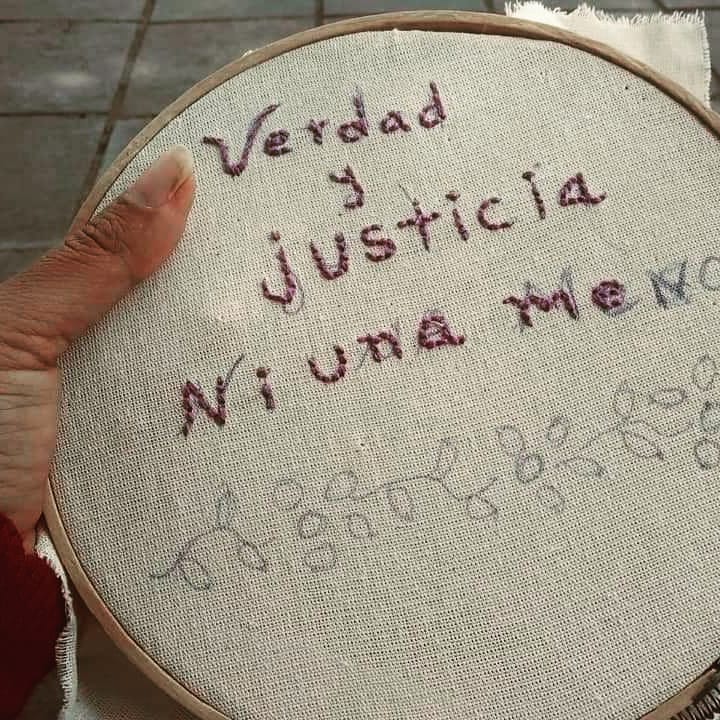 Verdad
y
justicia
Ni una MeNO